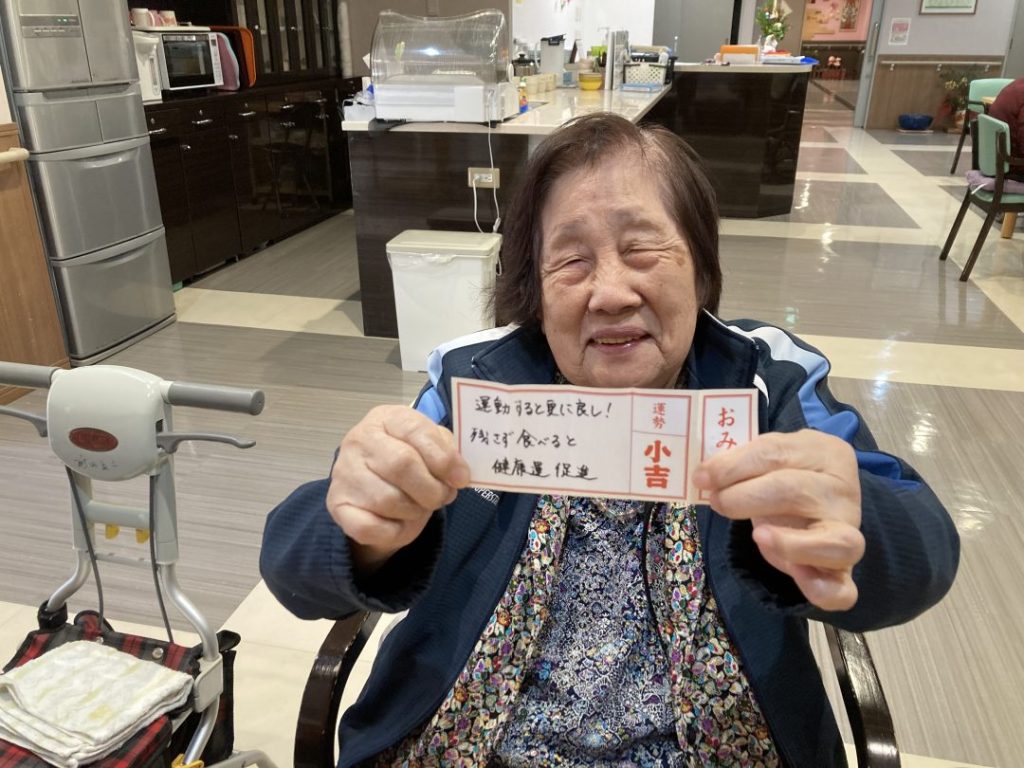 おみ
運勢
小吉
運動すると更に良し！
残さず食べると
健康運促進